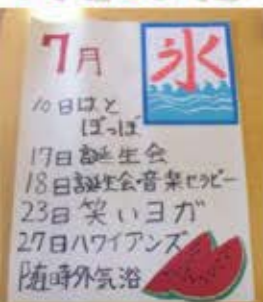 7月
氷
10日はと
ぽっぽ
17日誕生会
18日誕生会・音楽セラピー
23日笑いヨガ
27日ハワイアンズ
随時外気浴